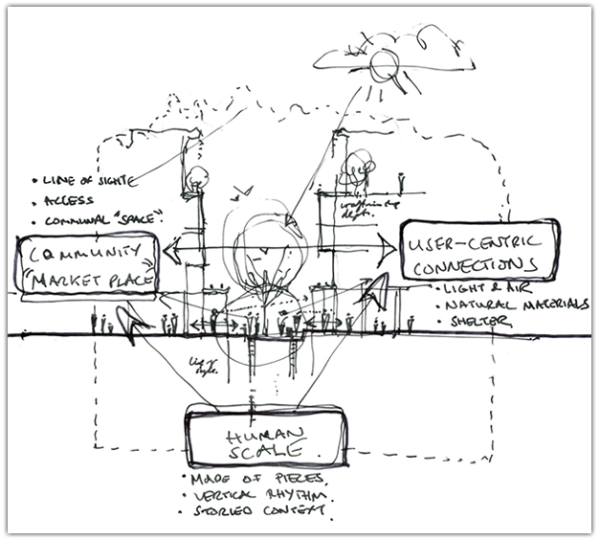 • LINE OF SIGHTE
• ACCESS
• COMMUNAL "SPACE".
COMMUNITY
"MARKET PLACE"
USER-CENTRIC
CONNECTIONS
• LIGHT & AIR
• NATURAL MATERIALS
• SHELTER
HUMAN
SCALE.
• MADE OF PIECES.
• VERTICAL RHYTHM.
• STORIED CONTEXT.